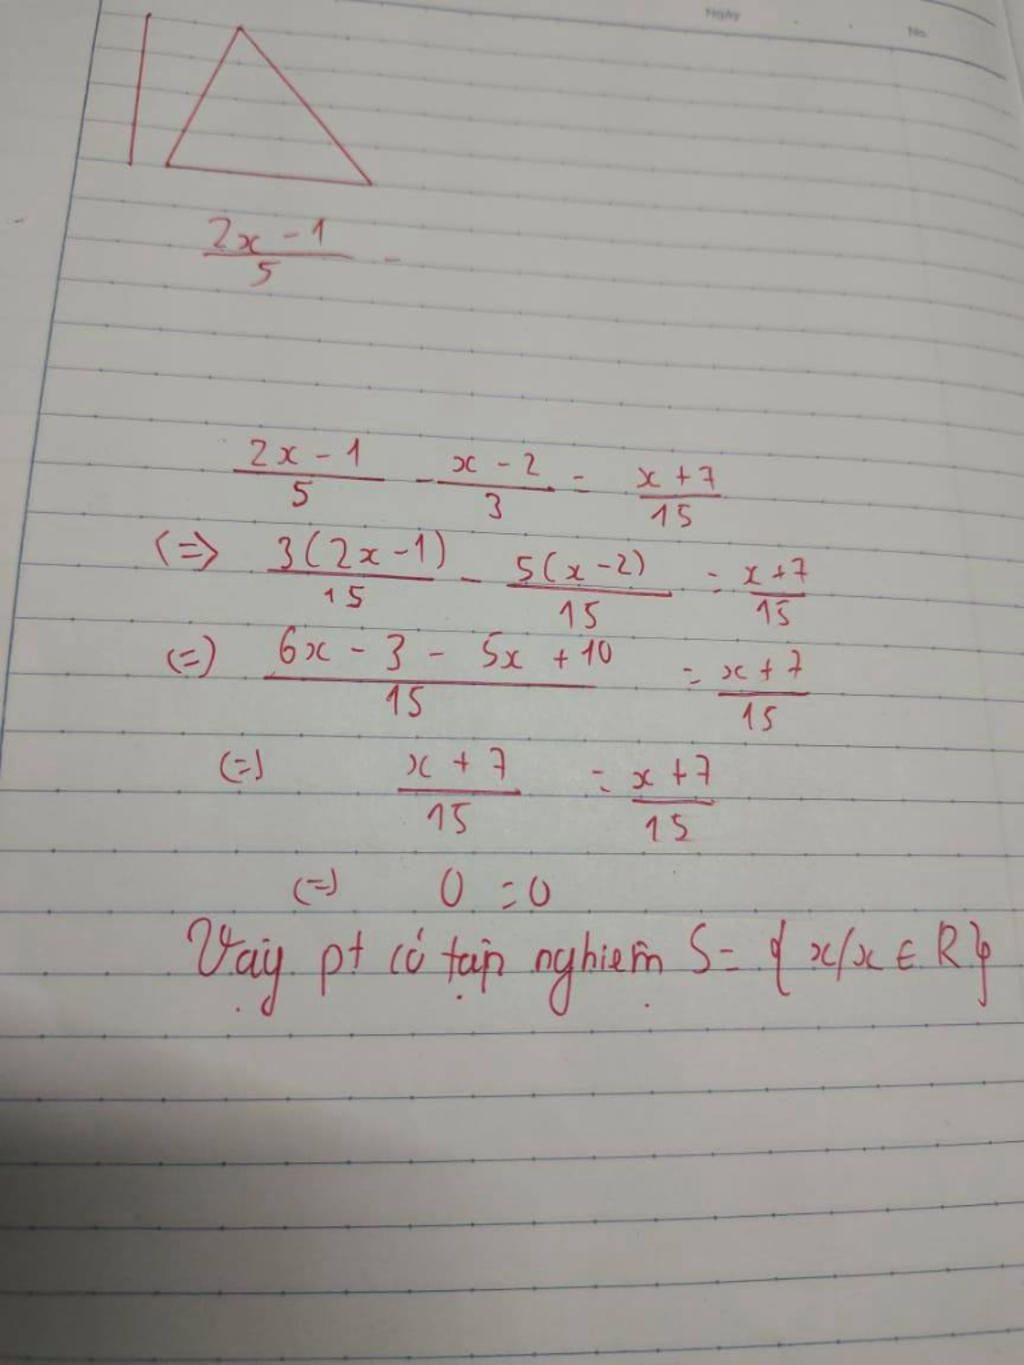 Ngày
No.
2x - 1 / 5 -
2x - 1 / 5 - x - 2 / 3 = x + 7 / 15
(=> 3(2x - 1) / 15 - 5(x - 2) / 15 = x + 7 / 15
(=) 6x - 3 - 5x + 10 / 15 = x + 7 / 15
(=) x + 7 / 15 = x + 7 / 15
(=) 0 = 0
Vậy pt có tập nghiệm S = { x/x ∈ R }